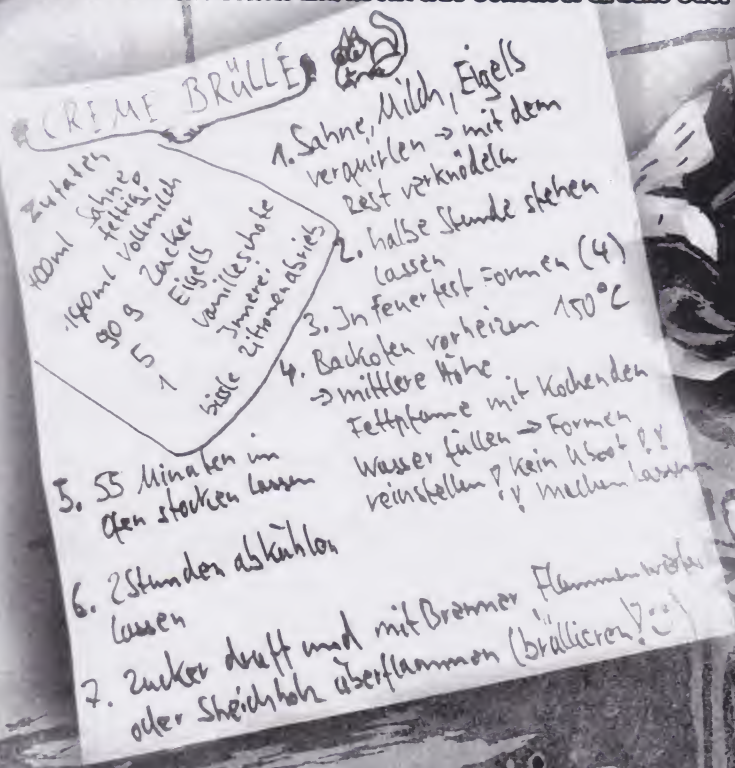 CREME BRÜLLÉ
Zutaten
400ml Sahne
fettig!
140ml Vollmilch
90 g Zucker
5 Eigelb
1 Vanilleschote
Innerei
bissle Zitronenabrieb
1. Sahne, Milch, Eigelb
verquirlen → mit dem
Rest verknödeln
2. halbe Stunde stehen
lassen
3. In feuerfest Formen (4)
4. Backofen vorheizen 150°C
→ mittlere Höhe
Fettpfanne mit kochenden
Wasser füllen → Formen
reinstellen! Kein Uboot !!
!! machen lassen
5. 55 Minuten im
Ofen stocken lassen
6. 2 Stunden abkühlen
lassen
7. Zucker druff und mit Brenner, Flammenwerfer
oder Streichholz überflammen (brüllieren!)